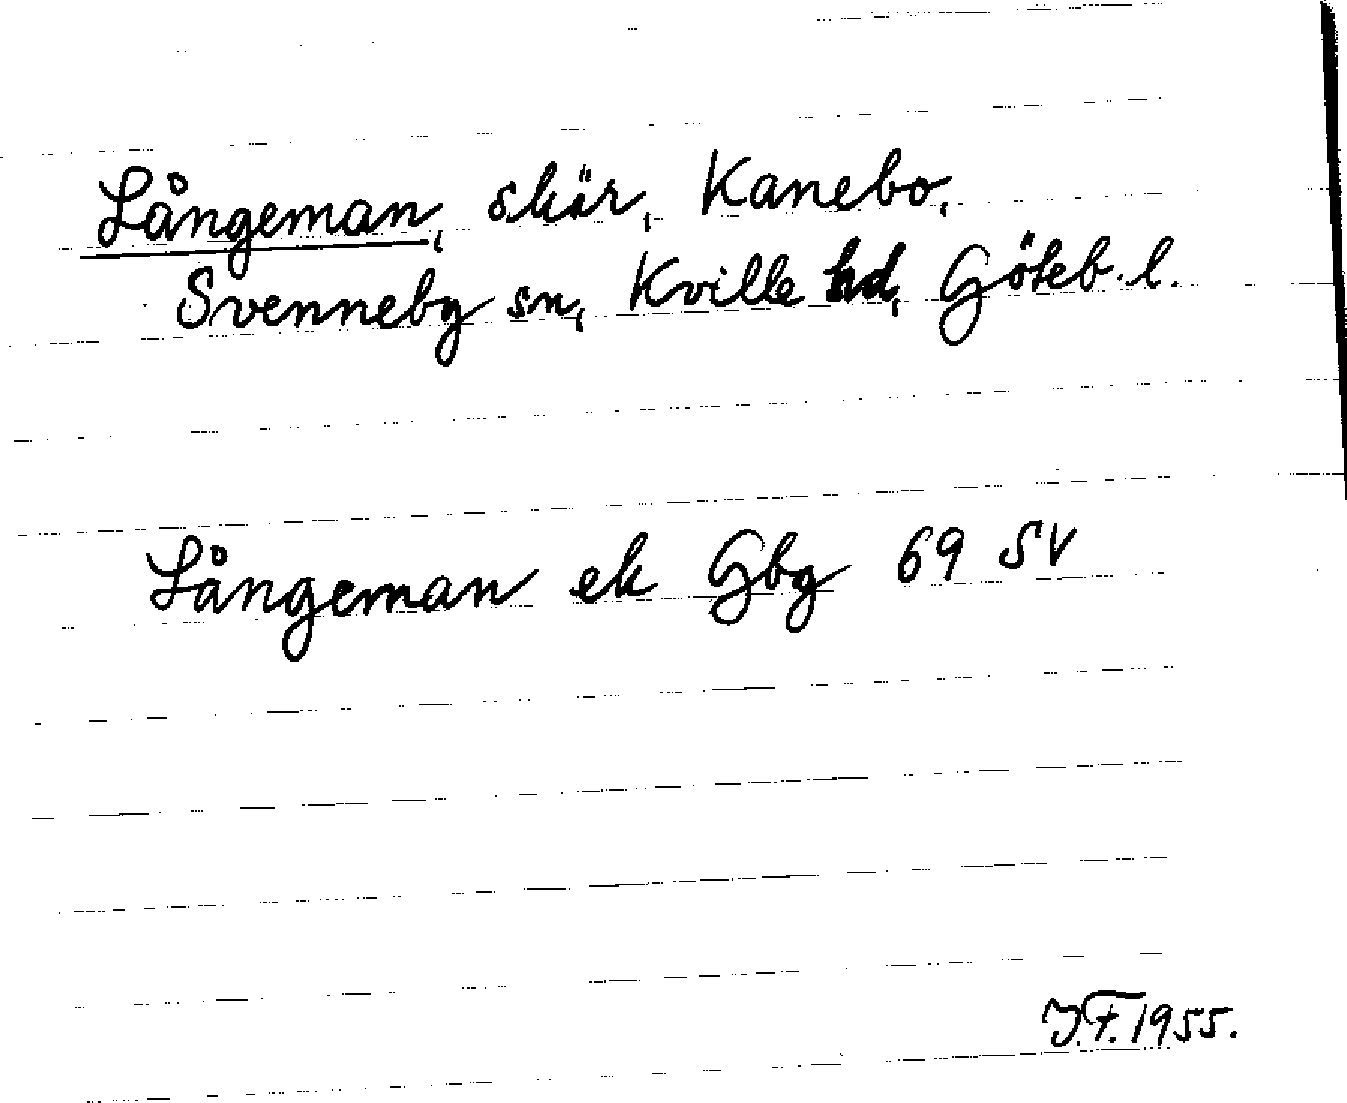 Långeman, skär, Kanebo,
Svenneby sn, Kville hd, Göteb. l.
Långeman ek Gbg 69 SV
J.F. 1955.